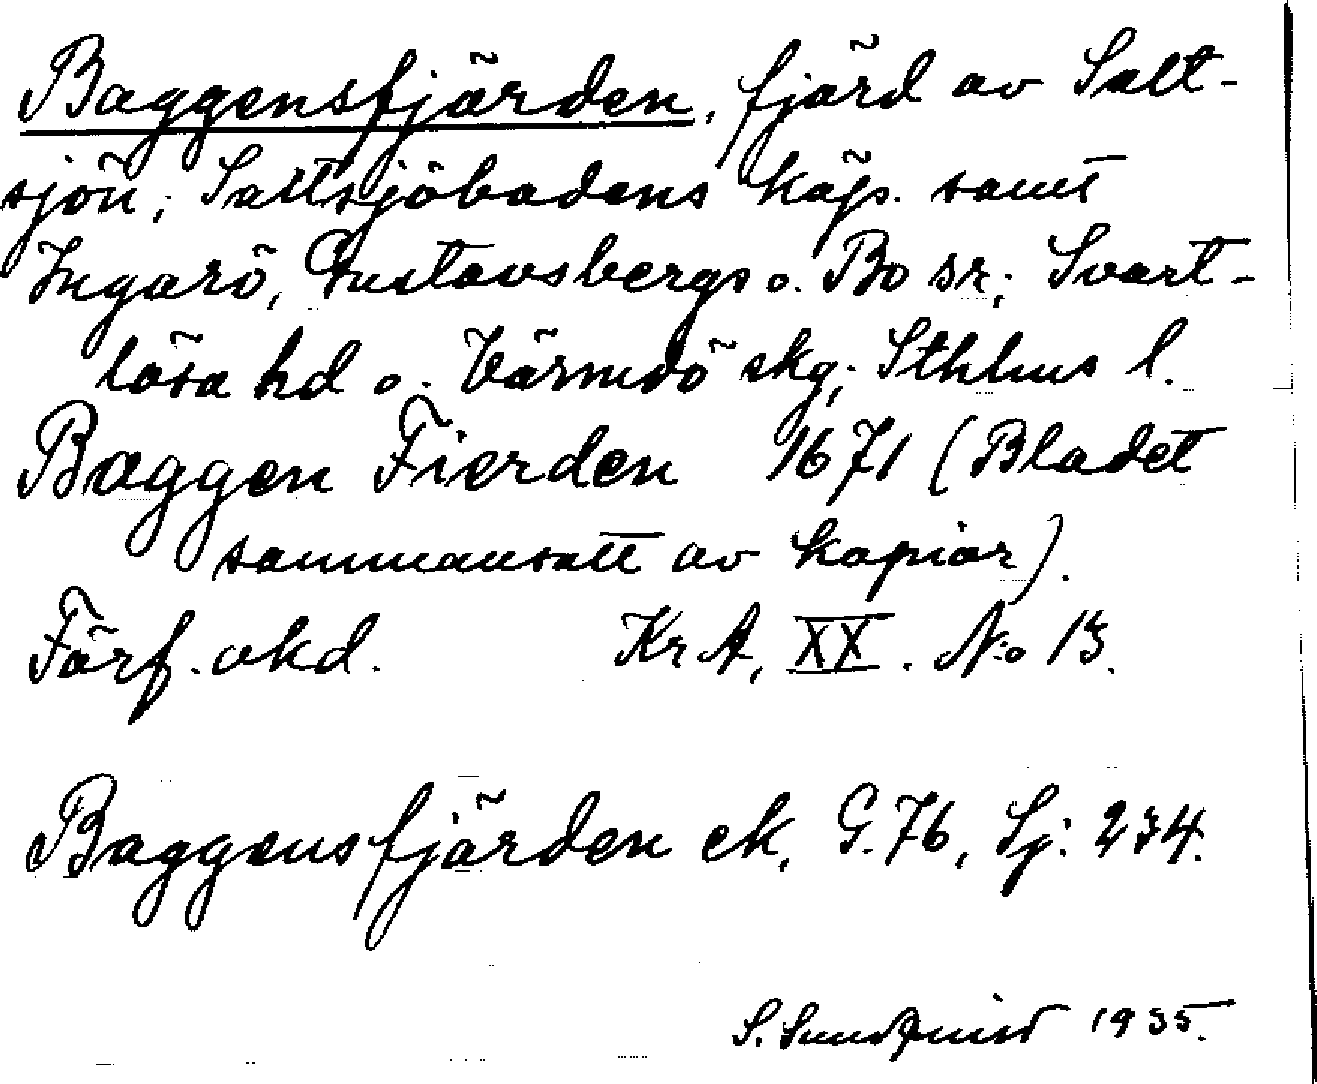 Baggensfjärden, fjärd av Salt-
sjön, Saltsjöbadens köp. samt
Ingarö, Gustavsbergs o. Bo sr; Svart-
lösa hd o. Värmdö skg; Sthlms l.
Baggen Fierden 1671 (Bladet
sammansatt av kopior).
Förf. okd. KrA, XX. No 13.
Baggensfjärden ek. G. 76, Sj: 234.
S. Sundquist 1935.